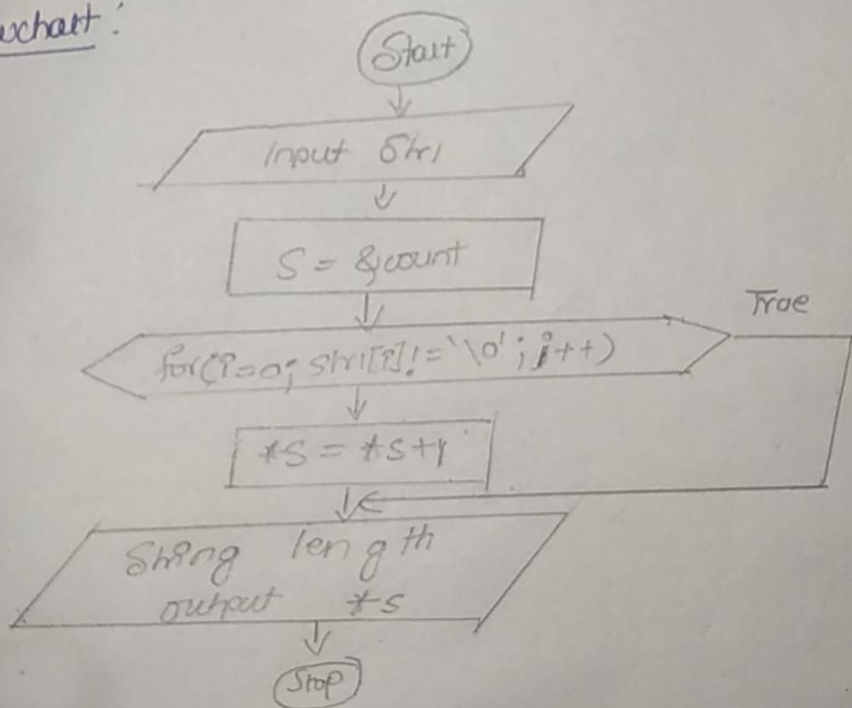 wchart:
Start
Input Str1
S = &count
True
for(i=0; str1[i]!='\0'; i++)
*S = *S+1
String length
output *s
Stop